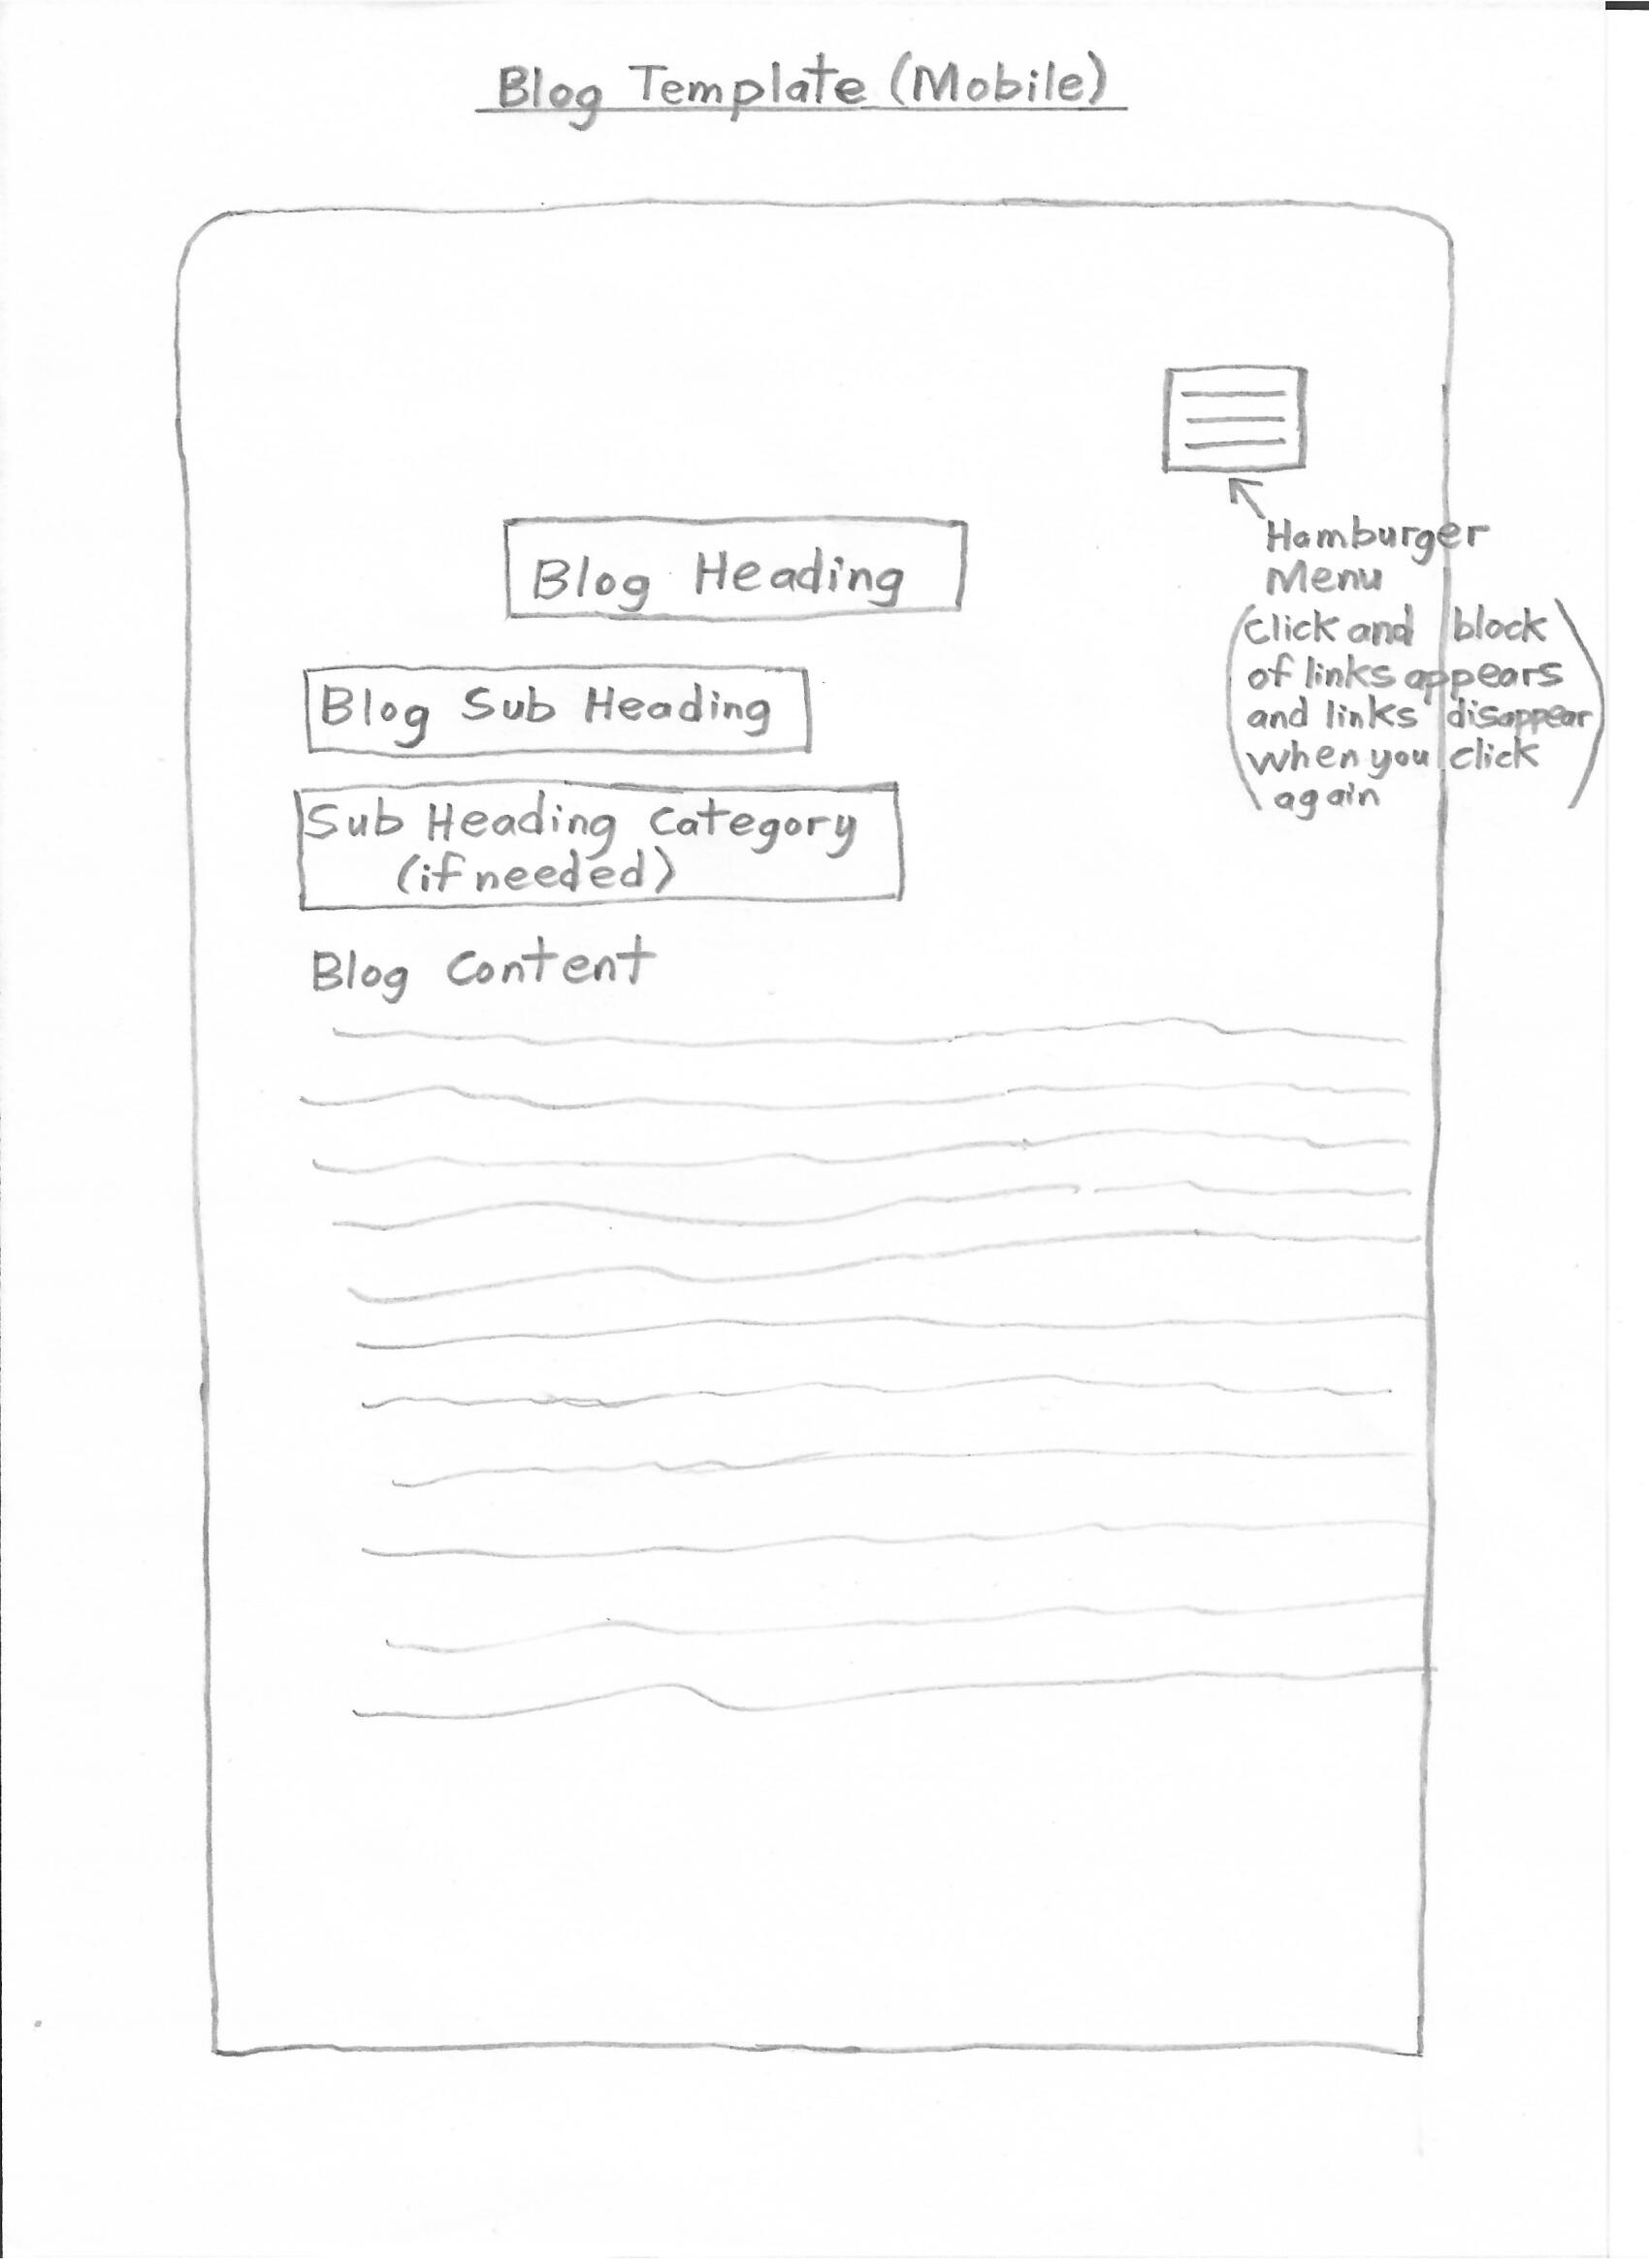 Blog Template (Mobile)
Blog Heading
Hamburger
Menu
(click and block
of links appears
and links disappear
when you click
again)
Blog Sub Heading
Sub Heading Category
(if needed)
Blog Content